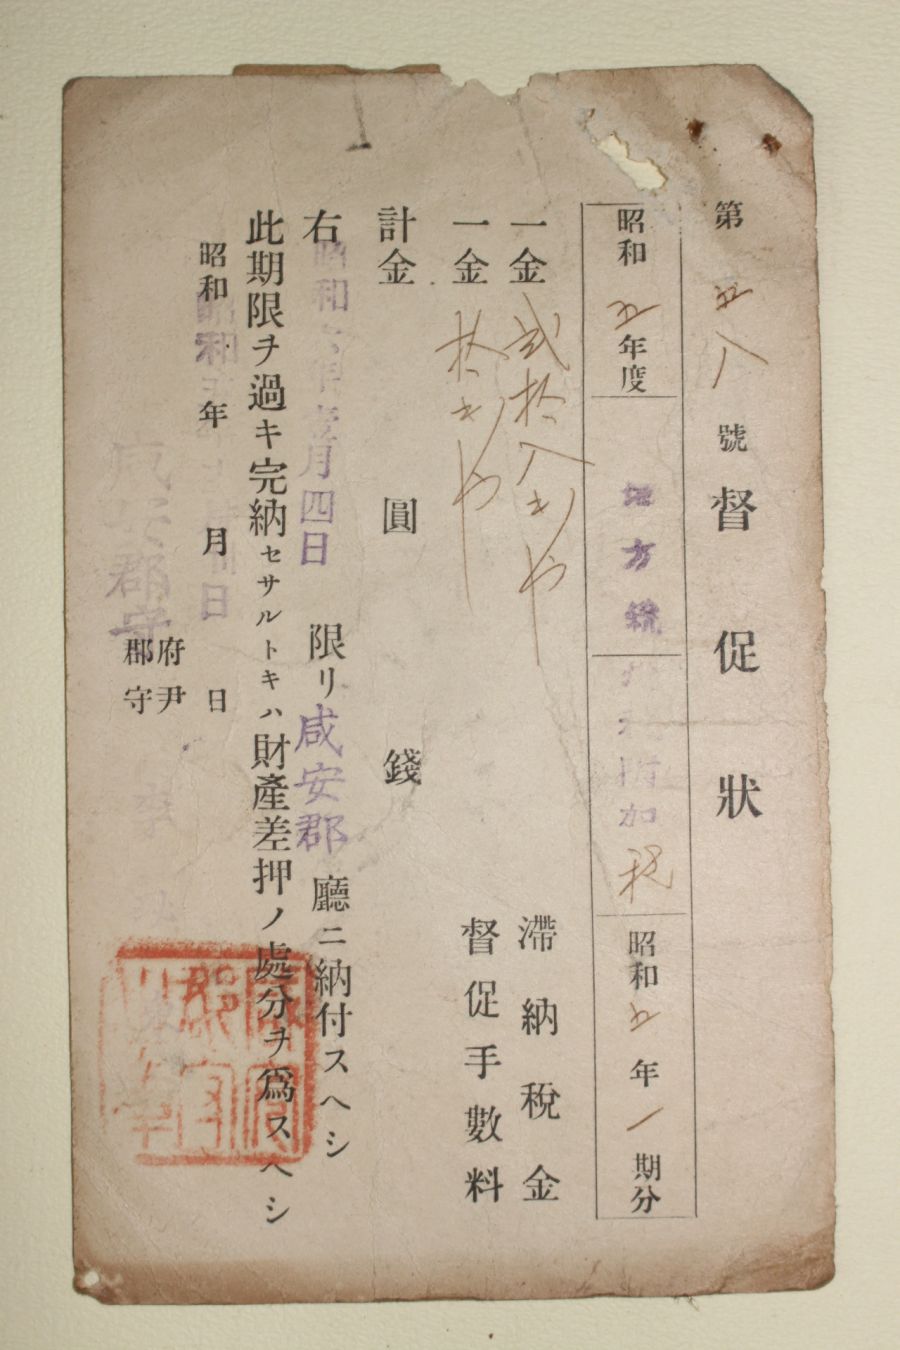 第五八號督促狀
昭和五年度 地方稅 附加稅 昭和五年1期分
一金貳拾八戔也 滯納稅金
一金拾戔也 督促手數料
計金 圓 錢
右昭和 月四日限リ咸安郡廳ニ納付スヘシ
此期限ヲ過キ完納セサルトキハ財產差押ノ處分ヲ爲スヘシ
昭和 年 月 日
昭和 日
府尹
郡守
咸安郡守